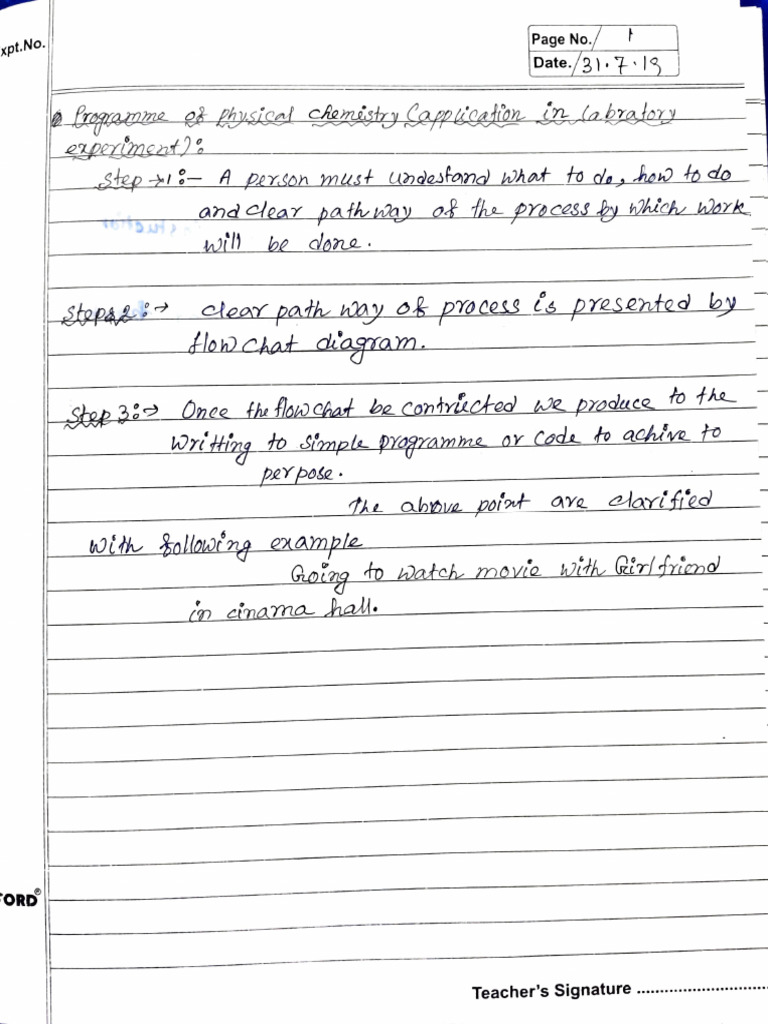 xpt.No.
Page No. 1
Date. 31.7.19
Programme of physical chemistry (application in labratory
experiment):
Step → 1:- A person must undestand what to do, how to do
and clear path way of the process by which work
will be done.
Steps 2:→ clear path way of process is presented by
flow chat diagram.
Step 3:→ Once the flow chat be contriected we produce to the
writting to simple programme or code to achive to
perpose.
The above point are clarified
with following example
Going to watch movie with Girlfriend
in cinama hall.
FORD®
Teacher's Signature ..............................